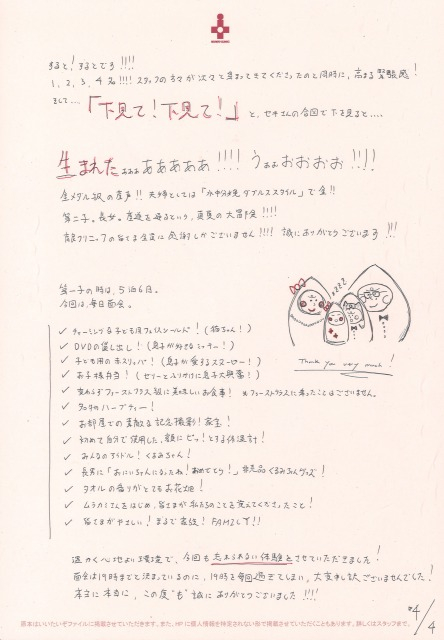 すると！するとです!!!!
1、2、3、4名!!!! スタッフの方々が次々と集まってきてくださったのと同時に、高まる緊張感！
そして…「下見て！下見て！」と、セキさんの合図で下を見ると….
生まれたぁぁぁあああああ!!!! うぉぉおおおお!!!!
金メダル級の産声!! 夫婦としては「水中分娩ダブルススタイル」で金!!
第二子。長女。産道を通るという、真夏の大冒険!!!!
産クリニックの皆さま全員に感謝しかございません!!!! 誠にありがとうございます!!!
第一子の時は、5泊6日。
今回は、毎日面会。
Thank you very much!
✓ チャーミングな子ども用フェイスシールド！（猫ちゃん！）
✓ DVDの貸し出し！（息子が好きなミッキー！）
✓ 子ども用のスリッパ！（息子が愛するスヌーピー！）
✓ お子様弁当！（ゼリーとふりかけに息子大興奮！）
✓ 変わらずファーストクラス級に美味しいお食事！ ※ファーストクラスに乗ったことはございません。
✓ ハーブティー！
✓ お部屋での素敵な記念撮影！家宝！
✓ 初めて自分で使用した、額にピッ！とする体温計！
✓ みんなのアイドル！くるみちゃん！
✓ 長男に「おにいちゃんになったね！おめでとう！」非売品くるみちゃんグッズ！
✓ タオルの香りがとてもお花畑！
✓ ムラカミさんをはじめ、皆さまが私たちのことを覚えてくださったこと！
✓ 皆さまがやさしい！まるで家族！FAMILY!!
温かく心地よい環境で、今回も忘れられない体験をさせていただきました！
面会は19時までと決まっているのに、19時を毎回過ぎてしまい、大変申し訳ございませんでした！
本当に本当に、この度“も”誠にありがとうございました!!!!
4/4
原本はいいたいぞファイルに掲載させていただきます。また、HPに個人情報を特定されない形で掲載させていただくこともあります。詳しくはスタッフまで。